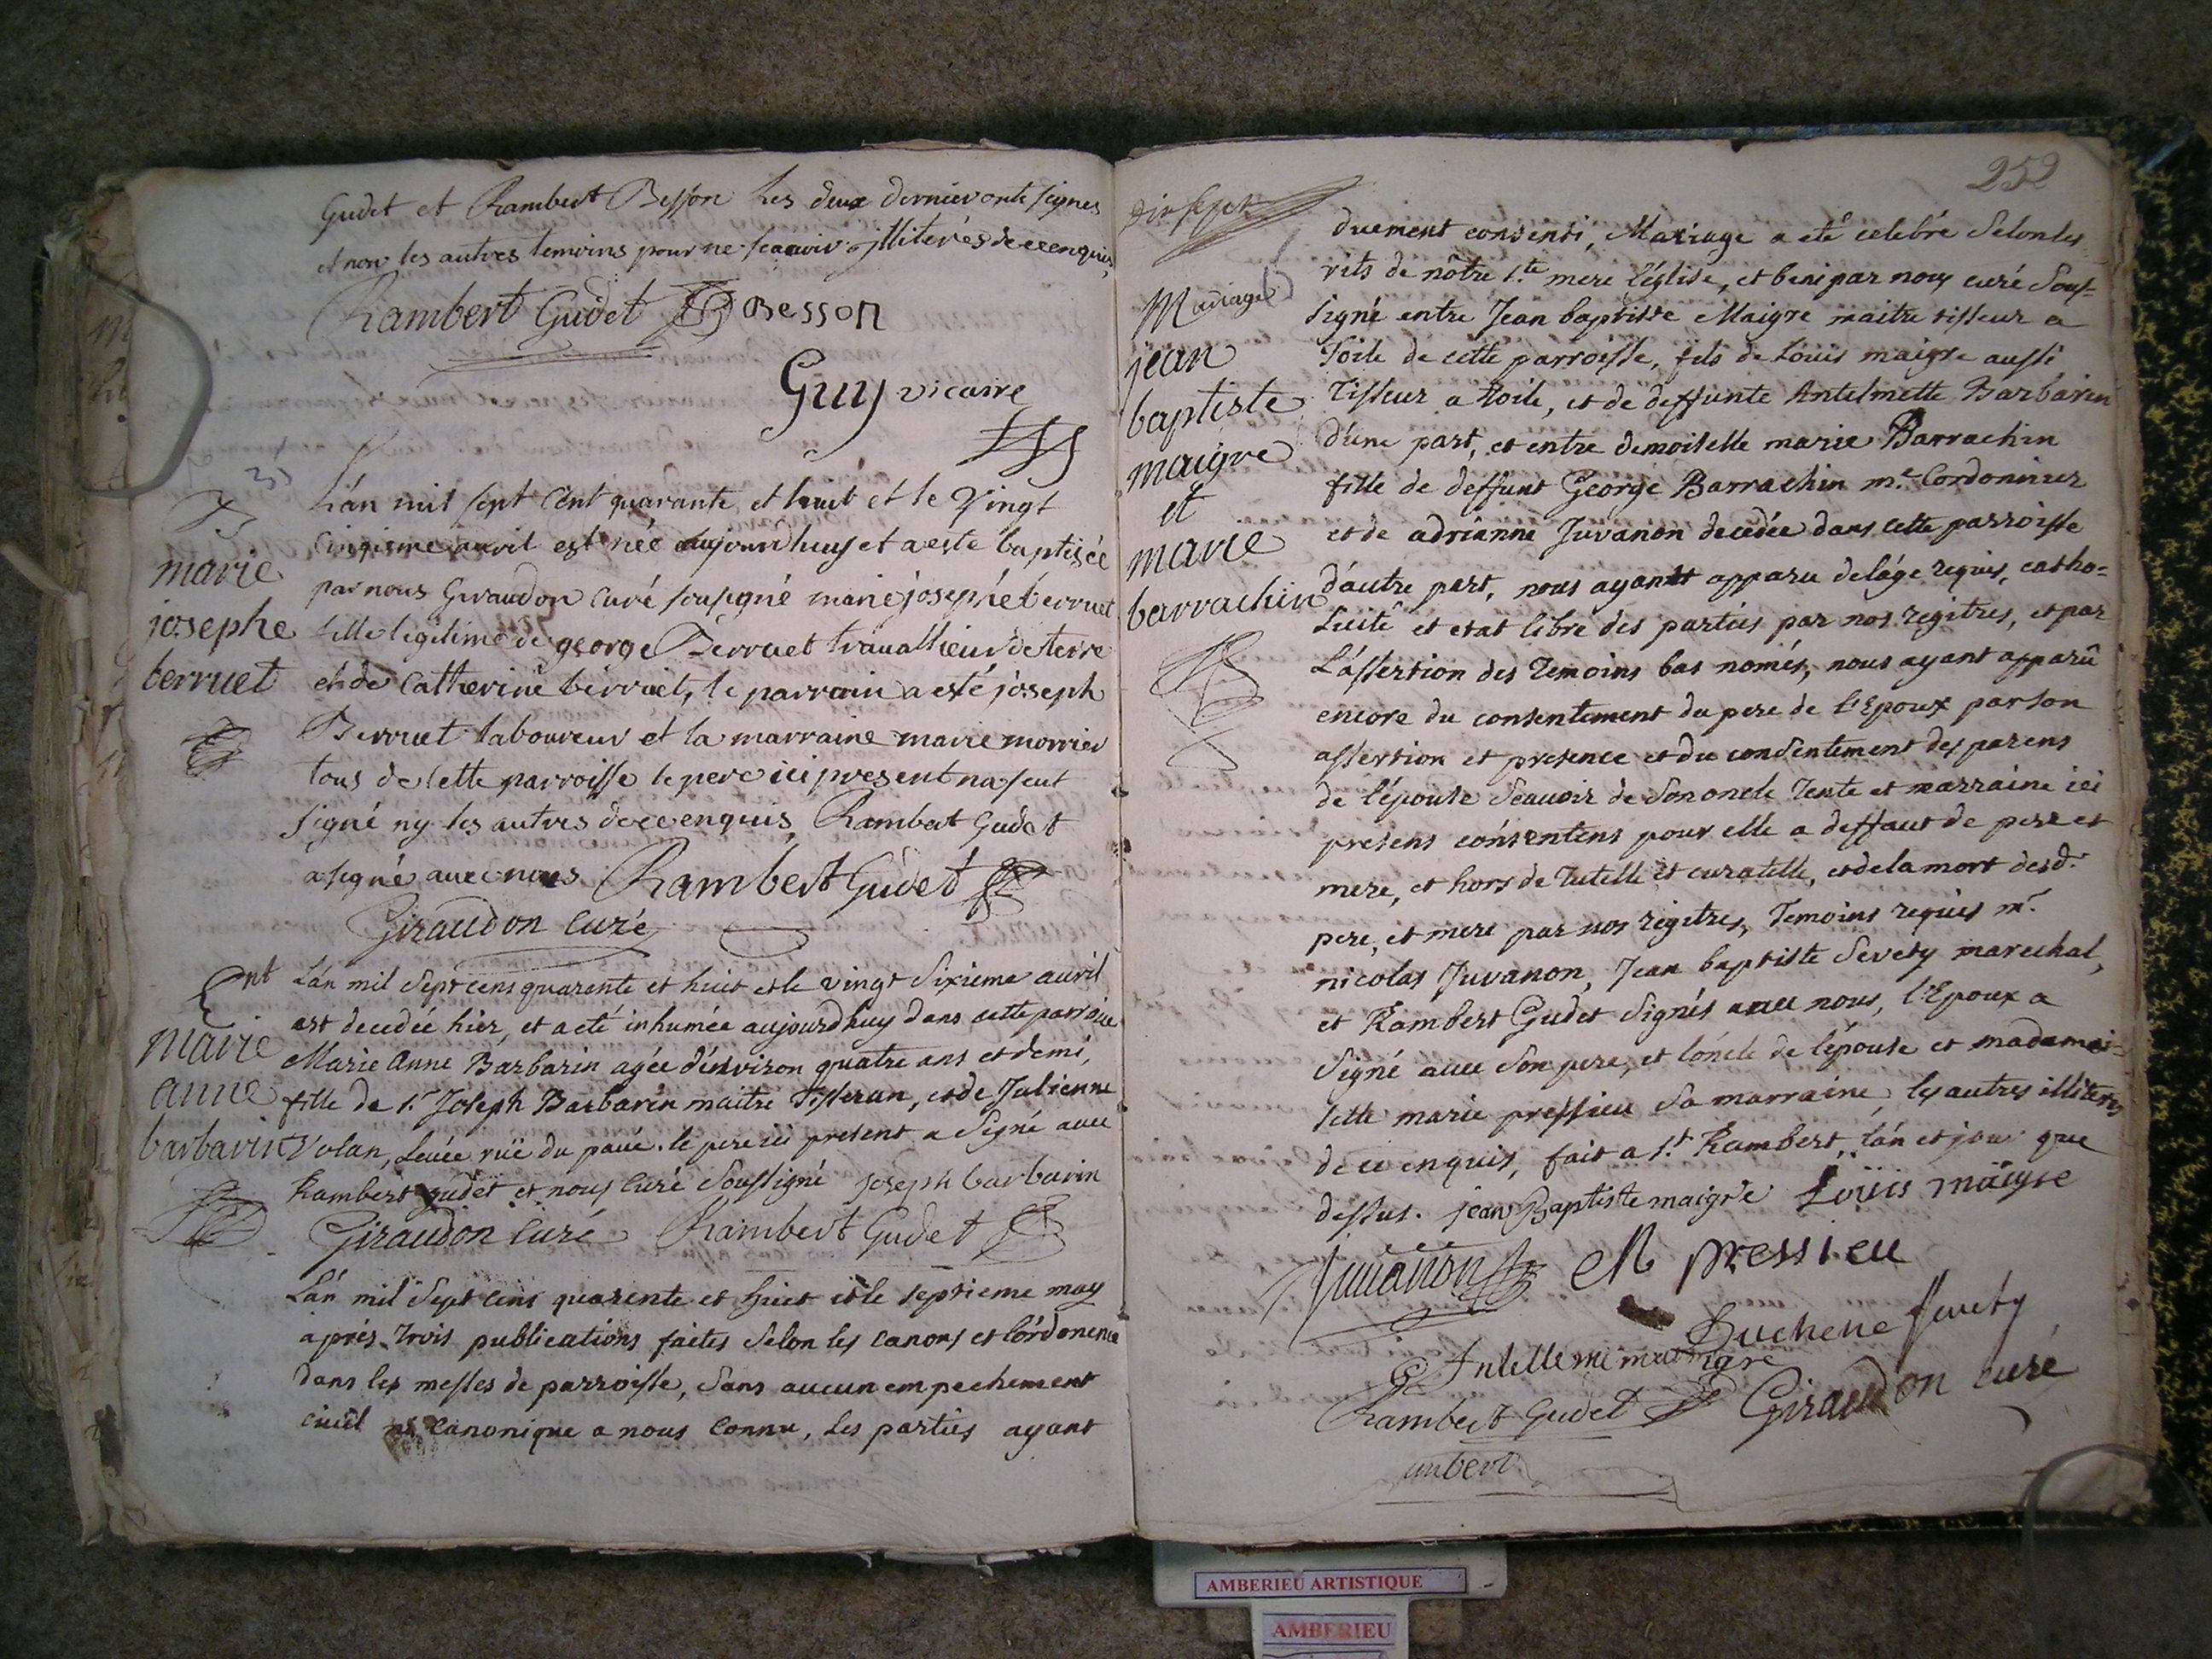 Gudet et Rambert Besson Les deux dernier onts signes
et non les autres temoins pour ne scauoir illiterés de ce enquis,
Rambert Gudet Besson
Guy vicaire
B
marie
josephe
berruet
L'an mil sept Cent quarante et huit et le Vingt
Cinqisme auril est née aujourdhuy et a este baptisée
par nous Giraudon Curé sousigné marie josephe berruet
fille legitime de george Berruet trauallieur de terre
et de Catherine berruet, le parrain a esté joseph
Berruet laboureur et la marraine marie morrier
tous de cette parroisse le pere ici present na sceut
signé ny les autres de ce enquis, Rambert Gudet
a signé auec nous Rambert Gudet
Giraudon Curé
Ent
marie
anne
barbarin
L'an mil Sept cens quarente et huit et le vingt Sixieme auril
est decedée hier, et a eté inhumée aujourdhuy dans cette parroisse
Marie Anne Barbarin agée d'environ quatre ans et demi,
fille de s.r Joseph Barbarin maitre Tisseran, et de Julienne
Volan, Leuée ruë du paué. le pere ici present a Signé auec
Rambert gudet et nous Curé Soussigné joseph barbarin
Giraudon Curé Rambert Gudet
L'an mil Sept cens quarente et huit et le septieme may
aprés Trois publications faites Selon les canons et l'ordonence
dans les messes de parroisse, Sans aucun empechement
ciuil ni canonique a nous connu, Les parties ayant
252
dixsept
Mariage
jean
baptiste
maigre
et
marie
barrachin
duement consenti, Mariage a eté celebré Selon les
rits de nôtre s.te mere l'église, et beni par nous curé Sous-
signé entre Jean baptiste Maigre maitre tisseur a
Toile de cette parroisse, fils de Louis maigre aussi
Tisseur a toile, et de deffunte Antelmette Barbarin
d'une part, et entre demoiselle marie Barrachin
fille de deffunt George Barrachin m.e Cordonnier
et de adrianne Juvanon decedée dans cette parroisse
d'autre part, nous ayant apparu de l'age requis, catho-
licité et etat libre des parties par nos regitres, et par
L'assertion des Temoins bas només, nous ayant apparû
encore du consentement du pere de l'Epoux par son
assertion et presence et du consentement des parens
de l'épouse Scauoir de Son oncle Tente et marraine ici
presens consentens pour elle a deffaut de pere et
mere, et hors de Tutelle et curatelle, et de la mort desd.
pere, et mere par nos regitres, Temoins requis m.r
nicolas Juvanon, Jean baptiste Severy marechal,
et Rambert Gudet Signés auec nous, l'Epoux a
Signé auec Son pere, et l'oncle de l'épouse et mademoi-
selle marie pressieu Sa marraine, les autres illiterés
de ce enquis, fait a s.t Rambert, l'an et jour que
dessus. jean Baptiste maigre Loüis maigre
Juuanon M pressieu
Duchene
Rambert Gudet Giraudon curé
AMBERIEU ARTISTIQUE
AMBERIEU